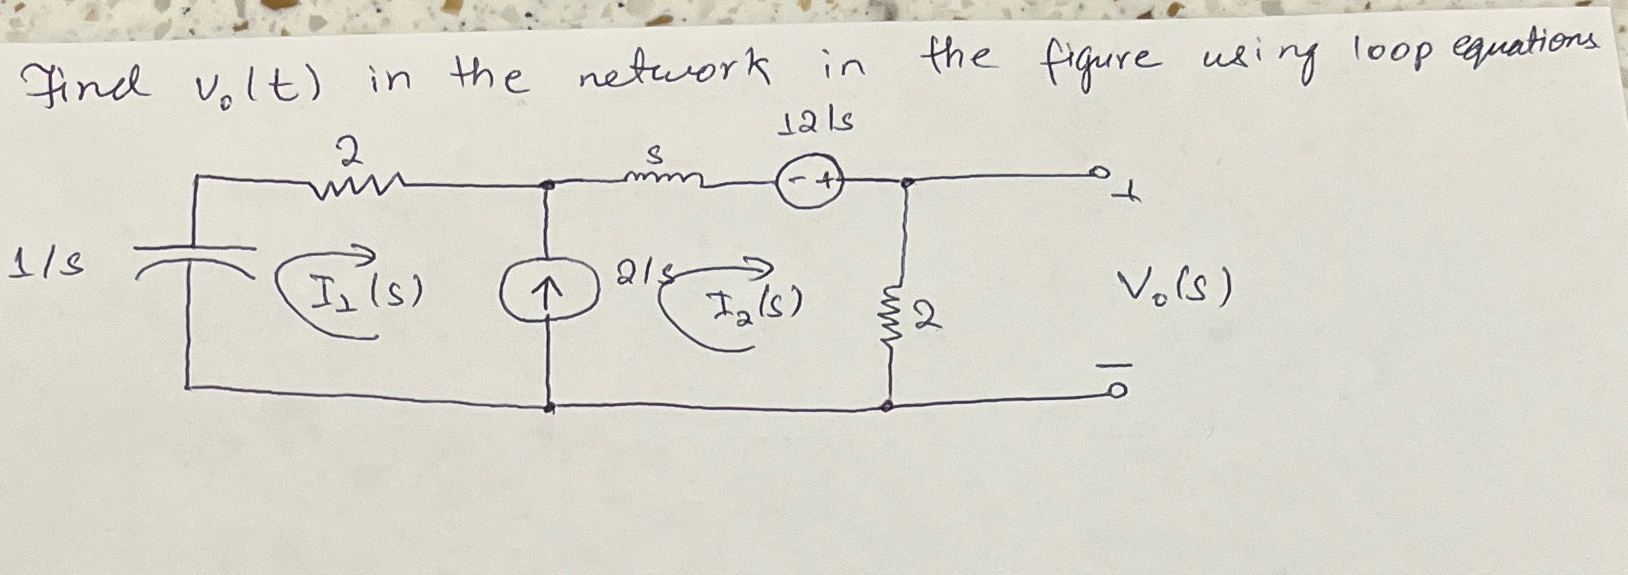 Find v₀(t) in the network in the figure using loop equations
12/s
2
s
- +
+
1/s
I₁(s)
2/s
I₂(s)
2
V₀(s)
-